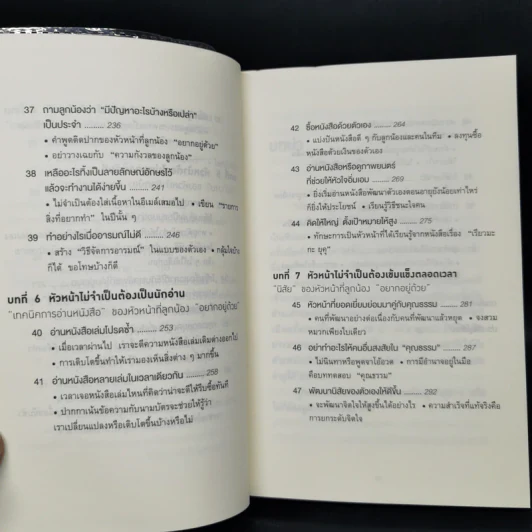 37 ถามลูกน้องว่า "มีปัญหาอะไรบ้างหรือเปล่า"
เป็นประจำ ......... 236
• คำพูดติดปากของหัวหน้าที่ลูกน้อง "อยากอยู่ด้วย"
• อย่าวางเฉยกับ "ความกังวลของลูกน้อง"
38 เหลืออะไรทิ้งเป็นลายลักษณ์อักษรไว้
แล้วจะทำงานได้ง่ายขึ้น ......... 241
• ไม่จำเป็นต้องใส่เนื้อหาในอีเมล์เสมอไป • เขียน "รายการ
สิ่งที่อยากทำ" ในปีนั้น ๆ
39 ทำอย่างไรเมื่ออารมณ์ไม่ดี ......... 246
• สร้าง "วิธีจัดการอารมณ์" ในแบบของตัวเอง • กลุ้มใจบ้าง
ก็ได้ ขอโทษบ้างก็ดี
บทที่ 6 หัวหน้าไม่จำเป็นต้องเป็นนักอ่าน
"เทคนิคการอ่านหนังสือ" ของหัวหน้าที่ลูกน้อง "อยากอยู่ด้วย"
40 อ่านหนังสือเล่มโปรดซ้ำ ......... 253
• เมื่อเวลาผ่านไป เราจะตีความหนังสือเล่มเดิมต่างออกไป
• การเติบโตขึ้นทำให้เรามองเห็นสิ่งต่าง ๆ มากขึ้น
41 อ่านหนังสือหลายเล่มในเวลาเดียวกัน ......... 258
• เวลาเจอหนังสือเล่มไหนที่คิดว่าน่าจะดีให้รีบซื้อทันที
• ปากกาเน้นข้อความกับนามบัตรจะช่วยให้รู้ว่า
เราเปลี่ยนแปลงหรือเติบโตขึ้นบ้างหรือไม่
42 ซื้อหนังสือด้วยตัวเอง ......... 264
• แบ่งปันหนังสือดี ๆ กับลูกน้องและคนในทีม • ลงทุนซื้อ
หนังสือด้วยเงินของตัวเอง
43 อ่านหนังสือหรือดูภาพยนตร์
ที่ช่วยให้หัวใจอิ่มเอม ......... 269
• ยิ่งเริ่มอ่านหนังสือพัฒนาตัวเองตอนอายุยังน้อยเท่าไหร่
ก็ยิ่งให้ประโยชน์ • เรียนรู้วิธีชนะใจคน
44 คิดให้ใหญ่ ตั้งเป้าหมายให้สูง ......... 275
• ทักษะการเป็นหัวหน้าที่ได้เรียนรู้จากหนังสือเรื่อง "เรียวมะ
กะ ยุคุ"
บทที่ 7 หัวหน้าไม่จำเป็นต้องเข้มแข็งตลอดเวลา
"นิสัย" ของหัวหน้าที่ลูกน้อง "อยากอยู่ด้วย"
45 หัวหน้าที่ยอดเยี่ยมย่อมมาคู่กับคุณธรรม
• คนที่พัฒนาอย่างต่อเนื่องกับคนที่พัฒนาแล้วหยุด • จงสวม
หมวกเพียงใบเดียว
46 อย่าทำอะไรให้คนอื่นสงสัยใน "คุณธรรม" ......... 287
• ไม่นินทาหรือพูดจาโอ้อวด • การมีอำนาจอยู่ในมือ
คือบททดสอบ "คุณธรรม"
47 พัฒนานิสัยของตัวเองให้ดีขึ้น ......... 292
• จะพัฒนาจิตใจให้สูงขึ้นได้อย่างไร • ความสำเร็จที่แท้จริงคือ
การยกระดับจิตใจ